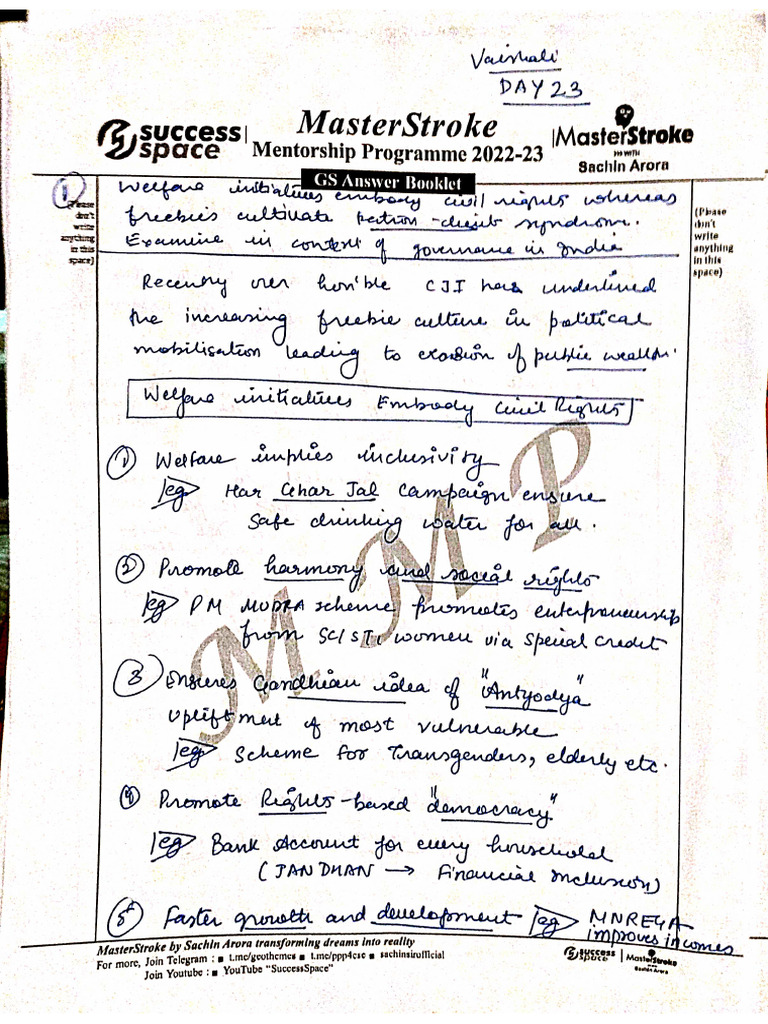 Vaishali
DAY 23
success space
MasterStroke
Mentorship Programme 2022-23
MasterStroke
WITH
Sachin Arora
GS Answer Booklet
1
(Please don't write anything in this space)
(Please don't write anything in this space)
Welfare initiatives embody civil rights whereas
freebies cultivate patron-client syndrome.
Examine in context of governance in India
Recently our hon'ble CJI has underlined
the increasing freebie culture in political
mobilisation leading to erossion of public wealth.
Welfare initiatives Embody Civil Rights
1) Welfare implies inclusivity
eg Har Ghar Jal campaign ensure
safe drinking water for all.
2) Promote harmony and social rights
eg PM MUDRA scheme promotes enterpreneurship
from SC/ST, women via special credit
3) Ensures Gandhian idea of "Antyodya"
upliftment of most vulnerable
eg Scheme for Transgenders, elderly etc.
4) Promote Rights-based "democracy"
eg Bank Account for every household
(JAN DHAN → Financial inclusion)
5) Faster growth and development eg MNREGA
improves incomes
MMP
MasterStroke by Sachin Arora transforming dreams into reality
For more, Join Telegram : ■ t.me/geothemes ■ t.me/ppp4cse ■ sachinsirufficial
Join Youtube : ■ YouTube "SuccessSpace"
success space
MasterStroke
Sachin Arora